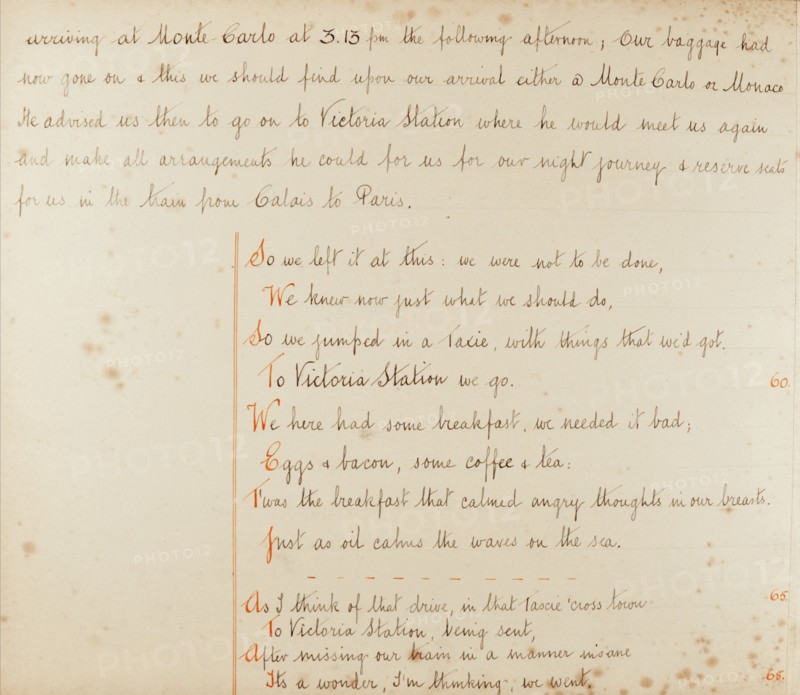 arriving at Monte Carlo at 3.13 pm the following afternoon; Our baggage had
now gone on & this we should find upon our arrival either @ Monte Carlo or Monaco
He advised us then to go on to Victoria Station where he would meet us again
and make all arrangements he could for us for our night journey & reserve seats
for us in the train from Calais to Paris.
So we left it at this: we were not to be done,
We knew now just what we should do,
So we jumped in a Taxie, with things that we'd got.
To Victoria Station we go. 60.
We here had some breakfast, we needed it bad;
Eggs & bacon, some coffee & tea:
T'was the breakfast that calmed angry thoughts in our breasts.
Just as oil calms the waves on the sea.
As I think of that drive, in that Taxie 'cross town 65.
To Victoria Station, being sent,
After missing our train in a manner insane
Its a wonder, I'm thinking, we went. 65.
PHOTO12